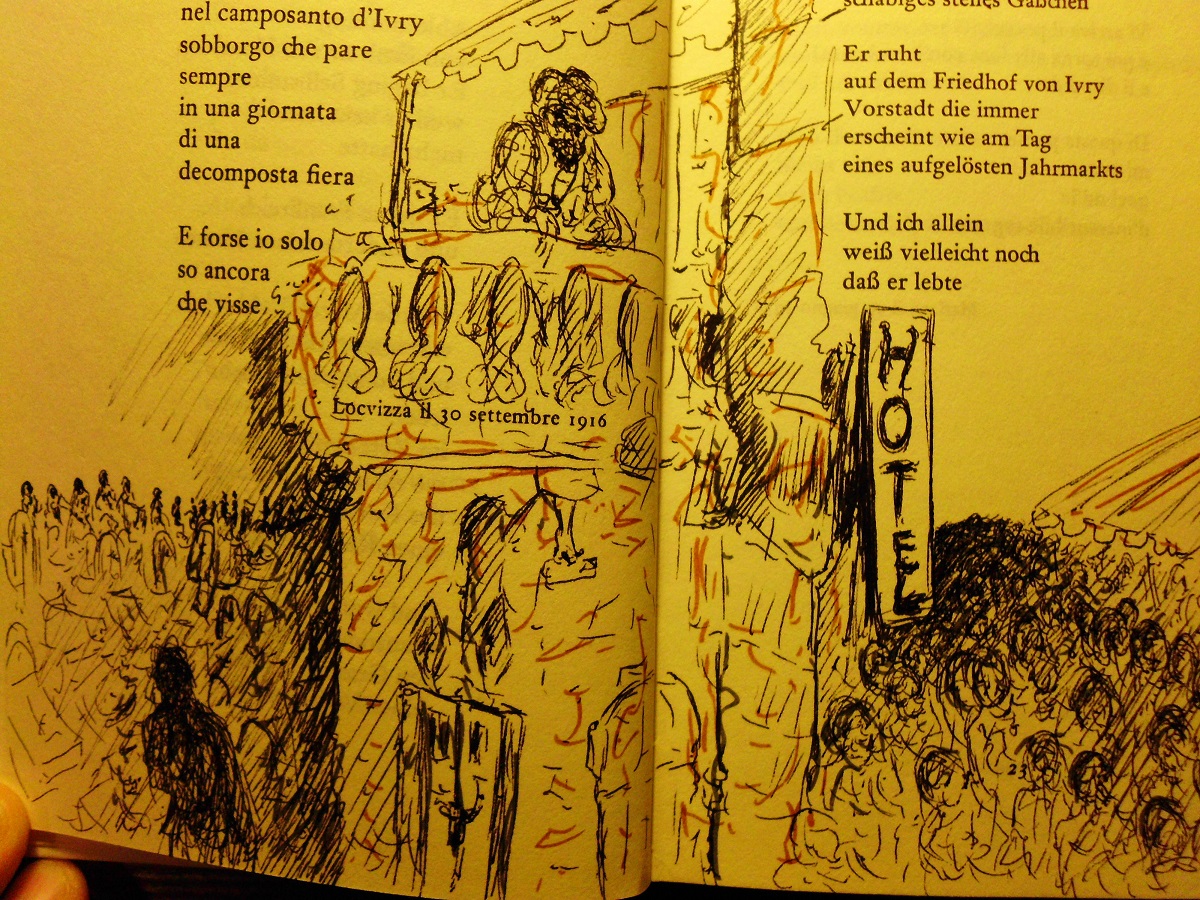 nel camposanto d'Ivry
sobborgo che pare
sempre
in una giornata
di una
decomposta fiera
E forse io solo
so ancora
che visse
Locvizza il 30 settembre 1916
schäbiges steiles Gäßchen
Er ruht
auf dem Friedhof von Ivry
Vorstadt die immer
erscheint wie am Tag
eines aufgelösten Jahrmarkts
Und ich allein
weiß vielleicht noch
daß er lebte
HOTEL
23